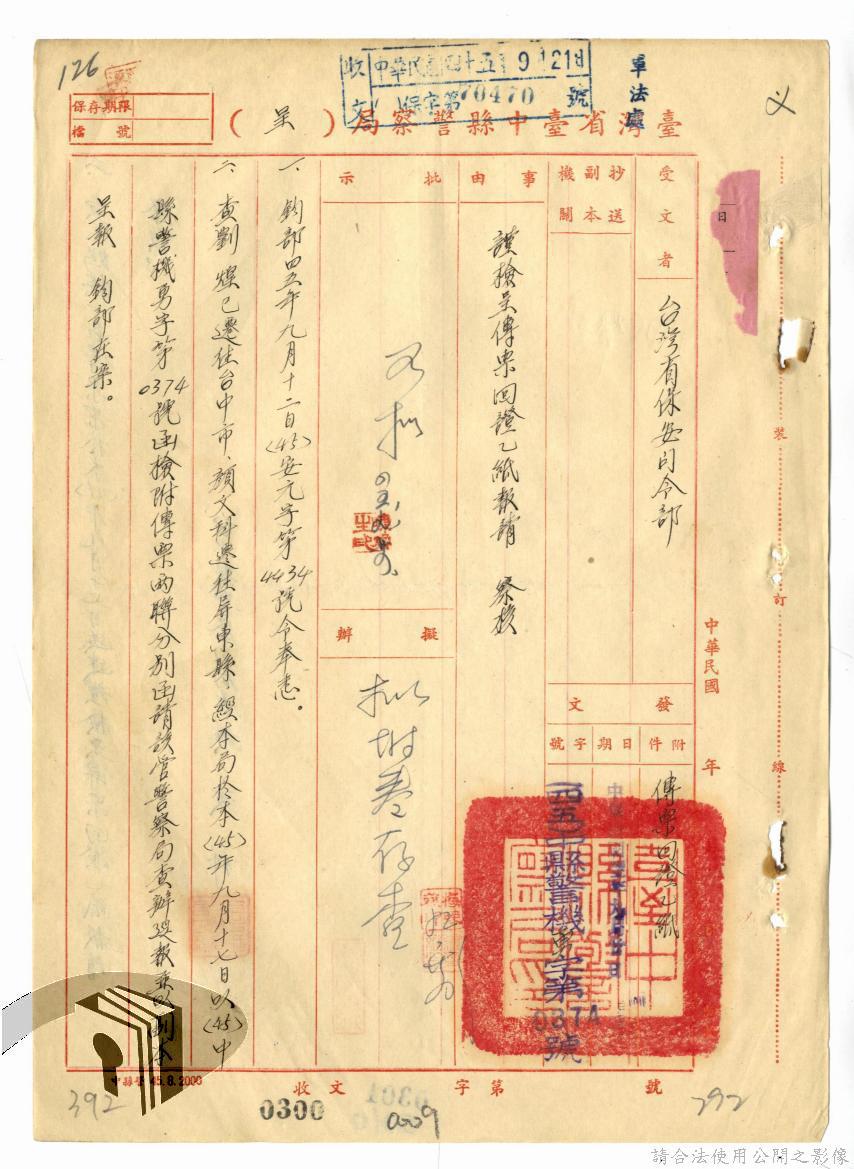 126
收文
中華民國四十五年9月21日
保字第70470號
軍法處
保存期限
檔號
臺灣省臺中縣警察局（呈）
受文者
台灣省保安司令部
抄送副本機關
事由
謹檢呈傳票回證乙紙報請 察核
批示
擬辦
拟附卷存查
發文
附件
傳票回證乙紙
日期
字號
(四五)中縣警機勇字第0374號
中華民國
年
一、鈞部四五年九月十二日(45)安元字第4434號令奉悉。
二、查劉燦已遷往台中市、顏文科遷往屏東縣、經本局於本(45)年九月十七日以(45)中
縣警機勇字第0374號函檢附傳票兩聯分別函請該管警察局查辦逕報並以副本
呈報 鈞部在案。
裝
訂
線
中縣警45.8.2000
收文
字第
號
0300
0301
0009
392
292
請合法使用公開之影像